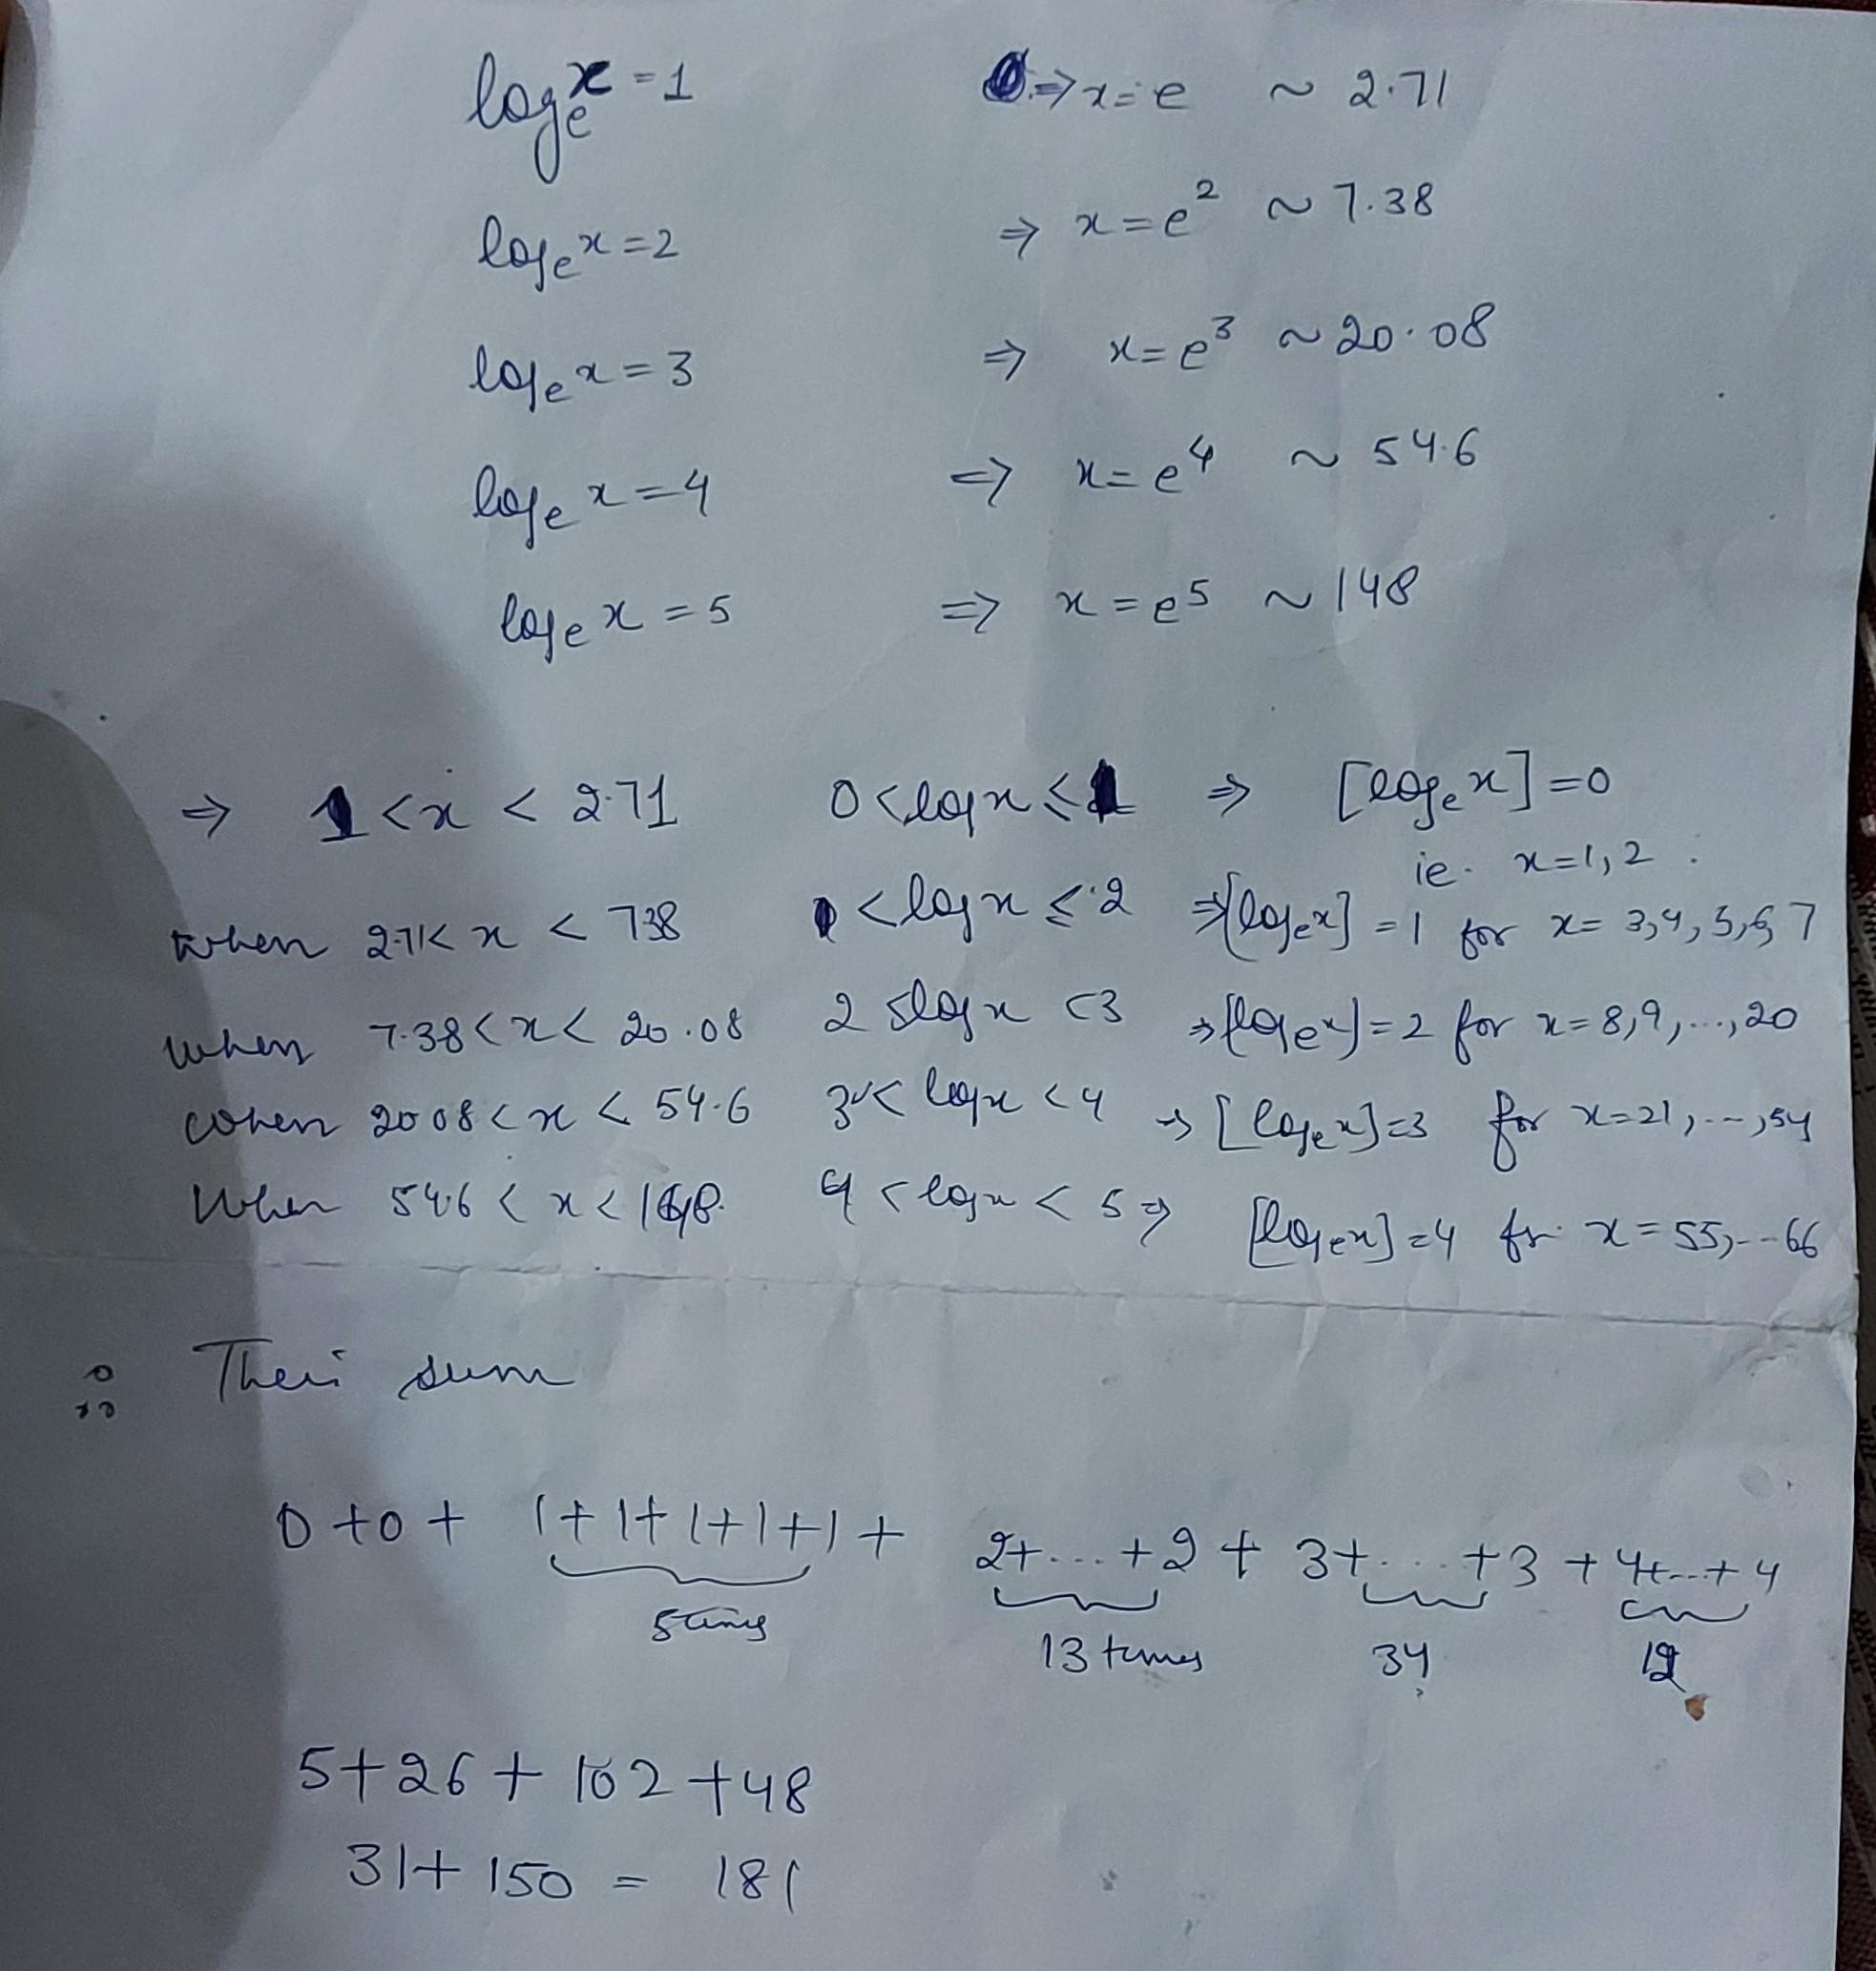 logₑx = 1 ⇒ x = e ~ 2.71
logₑx = 2 ⇒ x = e² ~ 7.38
logₑx = 3 ⇒ x = e³ ~ 20.08
logₑx = 4 ⇒ x = e⁴ ~ 54.6
logₑx = 5 ⇒ x = e⁵ ~ 148
⇒ 1 < x < 2.71 0 < log x ≤ 1 ⇒ [logₑx] = 0
ie. x = 1, 2.
when 2.71 < x < 7.38 1 < log x ≤ 2 ⇒ [logₑx] = 1 for x = 3, 4, 5, 6, 7
when 7.38 < x < 20.08 2 ≤ log x < 3 ⇒ [logₑx] = 2 for x = 8, 9, ..., 20
when 20.08 < x < 54.6 3 < log x < 4 ⇒ [logₑx] = 3 for x = 21, ..., 54
When 54.6 < x < 148. 4 < log x < 5 ⇒ [logₑx] = 4 fr x = 55, -- 66
∴ Their sum
0 + 0 + 1 + 1 + 1 + 1 + 1 + 2 + ... + 2 + 3 + ... + 3 + 4 + ... + 4
5 times 13 times 34 12
5 + 26 + 102 + 48
31 + 150 = 181